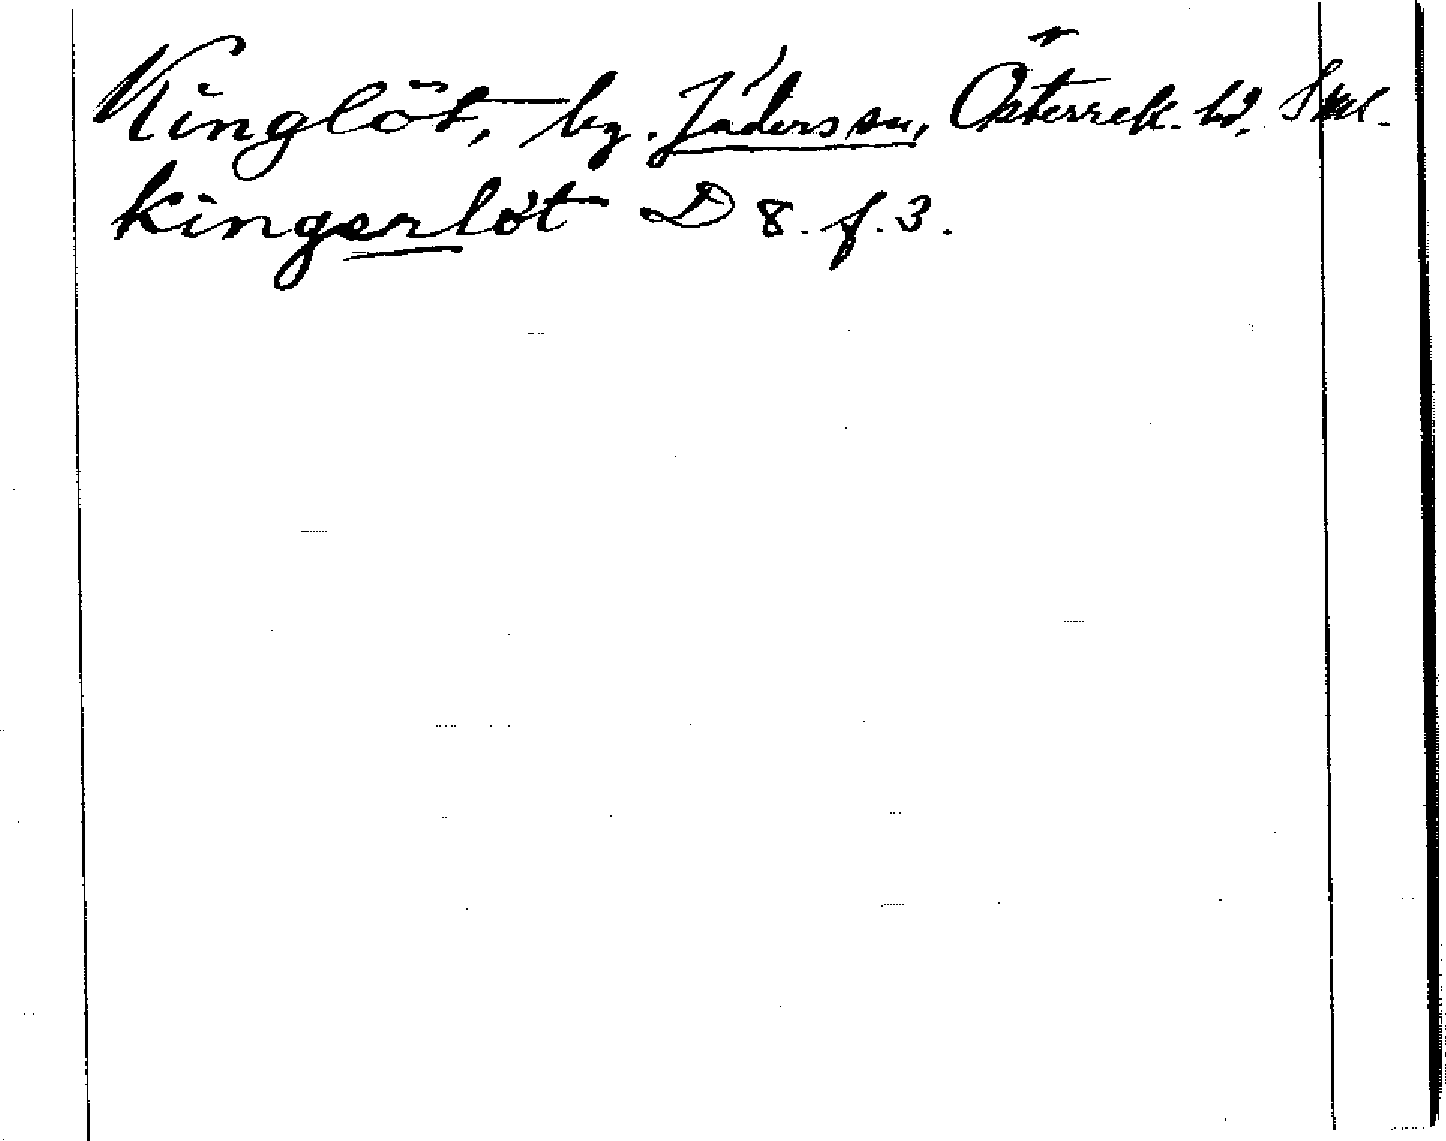 Kinglöt, by. Jäders sn, Österrek. hd, Sml.
kingerlöt D 8. f. 3.